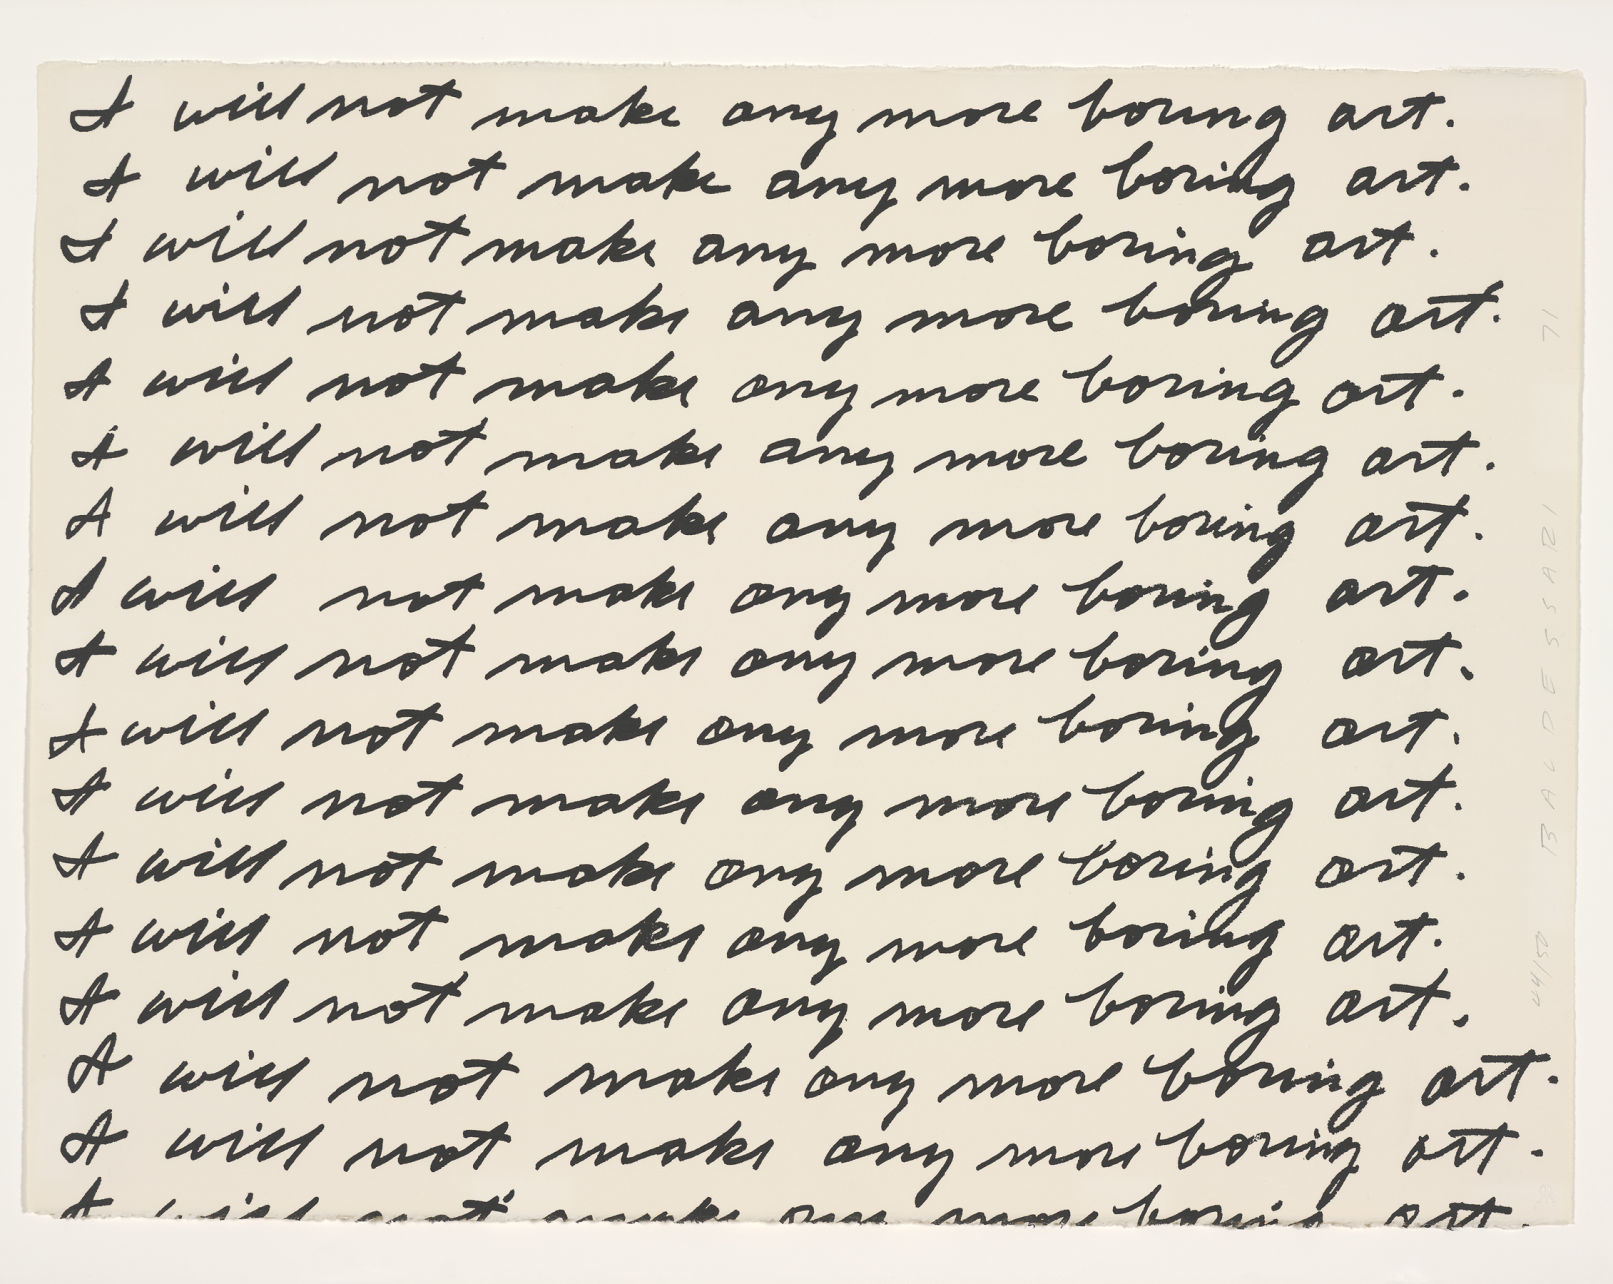 I will not make any more boring art.
I will not make any more boring art.
I will not make any more boring art.
I will not make any more boring art.
I will not make any more boring art.
I will not make any more boring art.
I will not make any more boring art.
I will not make any more boring art.
I will not make any more boring art.
I will not make any more boring art.
I will not make any more boring art.
I will not make any more boring art.
I will not make any more boring art.
I will not make any more boring art.
I will not make any more boring art.
I will not make any more boring art.
I will not make any more boring art.
44/50 BALDESSARI 71